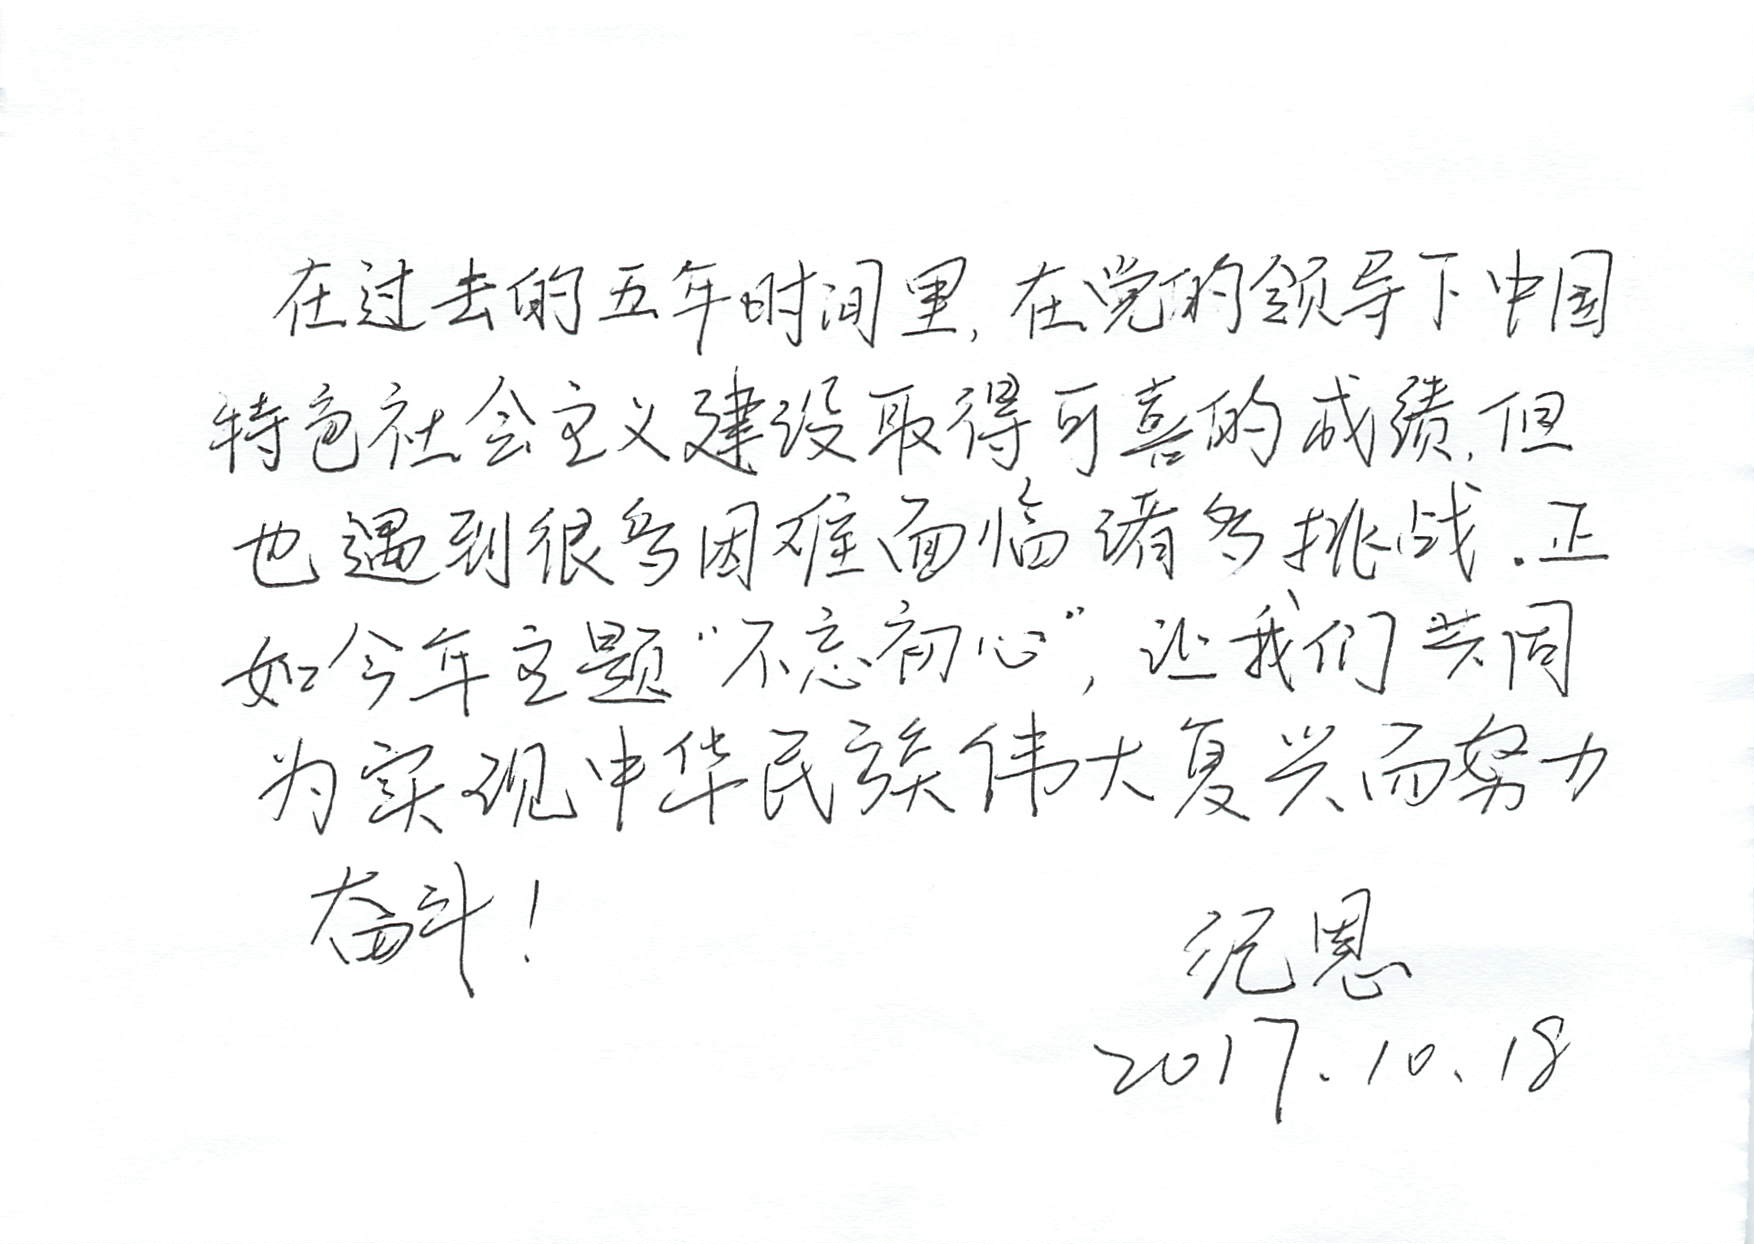 在过去的五年时间里,在党的领导下中国
特色社会主义建设取得可喜的成绩,但
也遇到很多困难面临诸多挑战.正
如今年主题“不忘初心”,让我们共同
为实现中华民族伟大复兴而努力
奋斗!
纪恩
2017.10.18